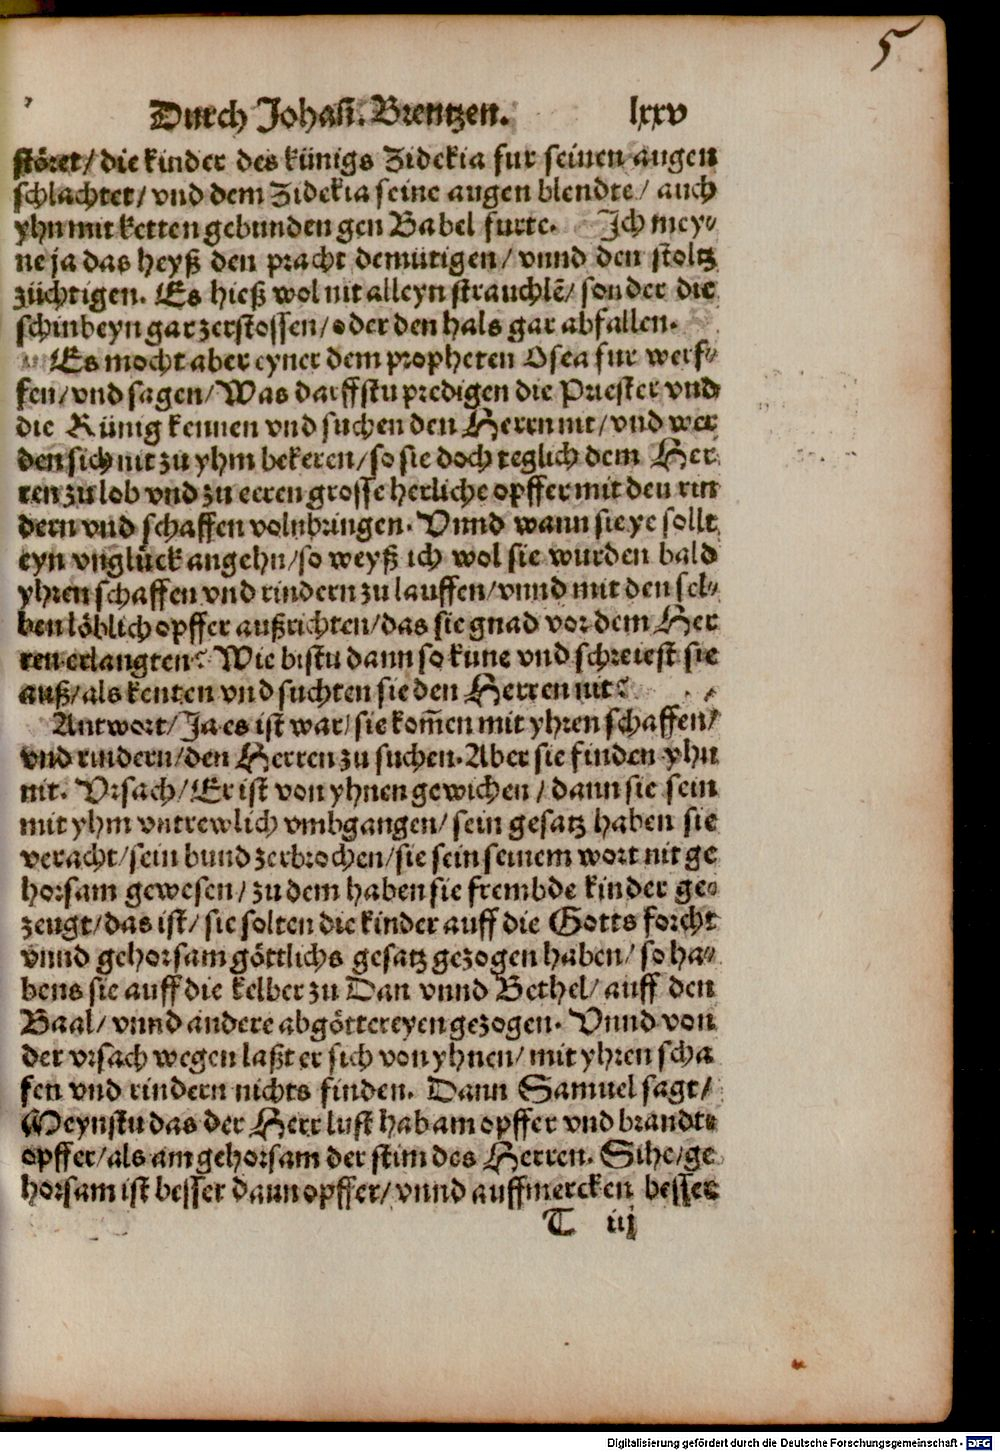 5
Durch Johañ. Brentzen. lxxv
störet/ die kinder des künigs Zidekia fur seinen augen
schlachtet/ vnd dem Zidekia seine augen blendte/ auch
yhn mit ketten gebunden gen Babel furte. Ich mey⸗
ne ja das heyß den pracht demütigen/ vnnd den stoltz
züchtigen. Es hieß wol nit alleyn strauchlẽ/ sonder die
schinbeyn gar zerstossen/ oder den hals gar abfallen.
Es mocht aber eyner dem propheten Osea fur werf⸗
fen/ vnd sagen/ Was darffstu predigen die Priester vnd
die Künig kennen vnd suchen den Herrn nit/ vnd wer
den sich nit zu yhm bekeren/ so sie doch teglich dem Her
ren zu lob vnd zu eeren grosse herliche opffer mit den rin
dern vnd schaffen volnbringen. Vnnd wann sie ye sollt
eyn vnglück angehn/ so weyß ich wol sie wurden bald
yhren schaffen vnd rindern zu lauffen/ vnnd mit den sel⸗
ben löblich opffer außrichten/ das sie gnad vor dem Her
ren erlangten? Wie bistu dann so küne vnd schreiest sie
auß/ als kenten vnd suchten sie den Herren nit?
Antwort/ Ja es ist war/ sie kom̃en mit yhren schaffen/
vnd rindern/ den Herren zu suchen. Aber sie finden yhn
nit. Vrsach/ Er ist von yhnen gewichen/ dann sie sein
mit yhm vntrewlich vmbgangen/ sein gesatz haben sie
veracht/ sein bund zerbrochen/ sie sein seinem wort nit ge
horsam gewesen/ zu dem haben sie frembde kinder ge⸗
zeugt/ das ist/ sie solten die kinder auff die Gotts forcht
vnnd gehorsam göttlichs gesatz gezogen haben/ so ha⸗
bens sie auff die kelber zu Dan vnnd Bethel/ auff den
Baal/ vnnd andere abgöttereyen gezogen. Vnnd von
der vrsach wegen laßt er sich von yhnen/ mit yhren scha
fen vnd rindern nichts finden. Dann Samuel sagt/
Meynstu das der Herr lust hab am opffer vnd brandt⸗
opffer/ als am gehorsam der stim des Herren. Sihe/ ge
horsam ist besser dann opffer/ vnnd auffmercken besser
T iij
Digitalisierung gefördert durch die Deutsche Forschungsgemeinschaft - DFG